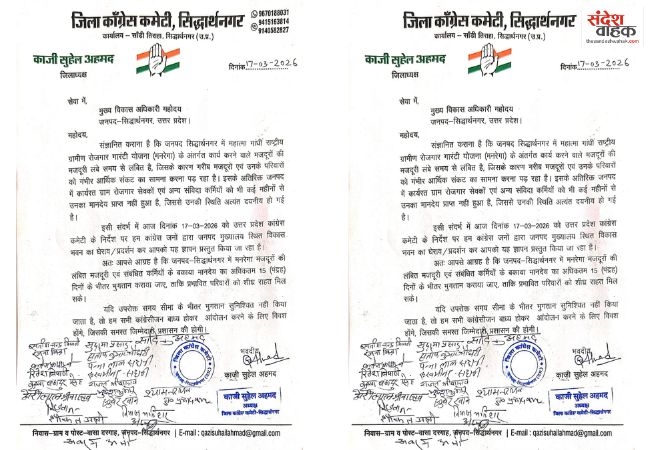 जिला काँग्रेस कमेटी, सिद्धार्थनगर
9670188031
9415163814
9140582827
कार्यालय – साँडी तिराहा, सिद्धार्थनगर (उ.प्र.)
काजी सुहेल अहमद
जिलाध्यक्ष
दिनांक 17-03-2026
सेवा में,
मुख्य विकास अधिकारी महोदय
जनपद-सिद्धार्थनगर, उत्तर प्रदेश।
महोदय,
संज्ञानित कराना है कि जनपद सिद्धार्थनगर में महात्मा गांधी राष्ट्रीय
ग्रामीण रोजगार गारंटी योजना (मनरेगा) के अंतर्गत कार्य करने वाले मजदूरों की
मजदूरी लंबे समय से लंबित है, जिसके कारण गरीब मजदूरों एवं उनके परिवारों
को गंभीर आर्थिक संकट का सामना करना पड़ रहा है। इसके अतिरिक्त जनपद
में कार्यरत ग्राम रोजगार सेवकों एवं अन्य संविदा कर्मियों को भी कई महीनों से
उनका मानदेय प्राप्त नहीं हुआ है, जिससे उनकी स्थिति अत्यंत दयनीय हो गई
है।
इसी संदर्भ में आज दिनांक 17-03-2026 को उत्तर प्रदेश कांग्रेस
कमेटी के निर्देश पर हम कांग्रेस जनों द्वारा जनपद मुख्यालय स्थित विकास
भवन का घेराव/प्रदर्शन कर आपको यह ज्ञापन प्रस्तुत किया जा रहा है।
अतः आपसे आग्रह है कि जनपद-सिद्धार्थनगर में मनरेगा मजदूरों की
लंबित मजदूरी एवं संबंधित कर्मियों के बकाया मानदेय का अधिकतम 15 (पंद्रह)
दिनों के भीतर भुगतान कराया जाए, ताकि प्रभावित परिवारों को शीघ्र राहत मिल
सके।
यदि उपरोक्त समय सीमा के भीतर भुगतान सुनिश्चित नहीं किया
जाता है, तो हम सभी कांग्रेसीजन बाध्य होकर आंदोलन करने के लिए विवश
होंगे, जिसकी समस्त जिम्मेदारी प्रशासन की होगी।
भवदीय
काजी सुहेल अहमद
काजी सुहेल अहमद
अध्यक्ष
जिला कांग्रेस कमेटी, सिद्धार्थनगर
निवास-ग्राम व पोस्ट-वासा दरगाह, जनपद-सिद्धार्थनगर | E-mail : qazisuhailahmad@gmail.com
संदेश
वाहक
thesandeshwahak.com
जिला काँग्रेस कमेटी, सिद्धार्थनगर
कार्यालय – साँडी तिराहा, सिद्धार्थनगर (उ.प्र.)
काजी सुहेल अहमद
जिलाध्यक्ष
दिनांक 17-03-2026
सेवा में,
मुख्य विकास अधिकारी महोदय
जनपद-सिद्धार्थनगर, उत्तर प्रदेश।
महोदय,
संज्ञानित कराना है कि जनपद सिद्धार्थनगर में महात्मा गांधी राष्ट्रीय
ग्रामीण रोजगार गारंटी योजना (मनरेगा) के अंतर्गत कार्य करने वाले मजदूरों की
मजदूरी लंबे समय से लंबित है, जिसके कारण गरीब मजदूरों एवं उनके परिवारों
को गंभीर आर्थिक संकट का सामना करना पड़ रहा है। इसके अतिरिक्त जनपद
में कार्यरत ग्राम रोजगार सेवकों एवं अन्य संविदा कर्मियों को भी कई महीनों से
उनका मानदेय प्राप्त नहीं हुआ है, जिससे उनकी स्थिति अत्यंत दयनीय हो गई
है।
इसी संदर्भ में आज दिनांक 17-03-2026 को उत्तर प्रदेश कांग्रेस
कमेटी के निर्देश पर हम कांग्रेस जनों द्वारा जनपद मुख्यालय स्थित विकास
भवन का घेराव/प्रदर्शन कर आपको यह ज्ञापन प्रस्तुत किया जा रहा है।
अतः आपसे आग्रह है कि जनपद-सिद्धार्थनगर में मनरेगा मजदूरों की
लंबित मजदूरी एवं संबंधित कर्मियों के बकाया मानदेय का अधिकतम 15 (पंद्रह)
दिनों के भीतर भुगतान कराया जाए, ताकि प्रभावित परिवारों को शीघ्र राहत मिल
सके।
यदि उपरोक्त समय सीमा के भीतर भुगतान सुनिश्चित नहीं किया
जाता है, तो हम सभी कांग्रेसीजन बाध्य होकर आंदोलन करने के लिए विवश
होंगे, जिसकी समस्त जिम्मेदारी प्रशासन की होगी।
भवदीय
काजी सुहेल अहमद
काजी सुहेल अहमद
अध्यक्ष
जिला कांग्रेस कमेटी, सिद्धार्थनगर
निवास-ग्राम व पोस्ट-वासा दरगाह, जनपद-सिद्धार्थनगर | E-mail : qazisuhailahmad@gmail.com